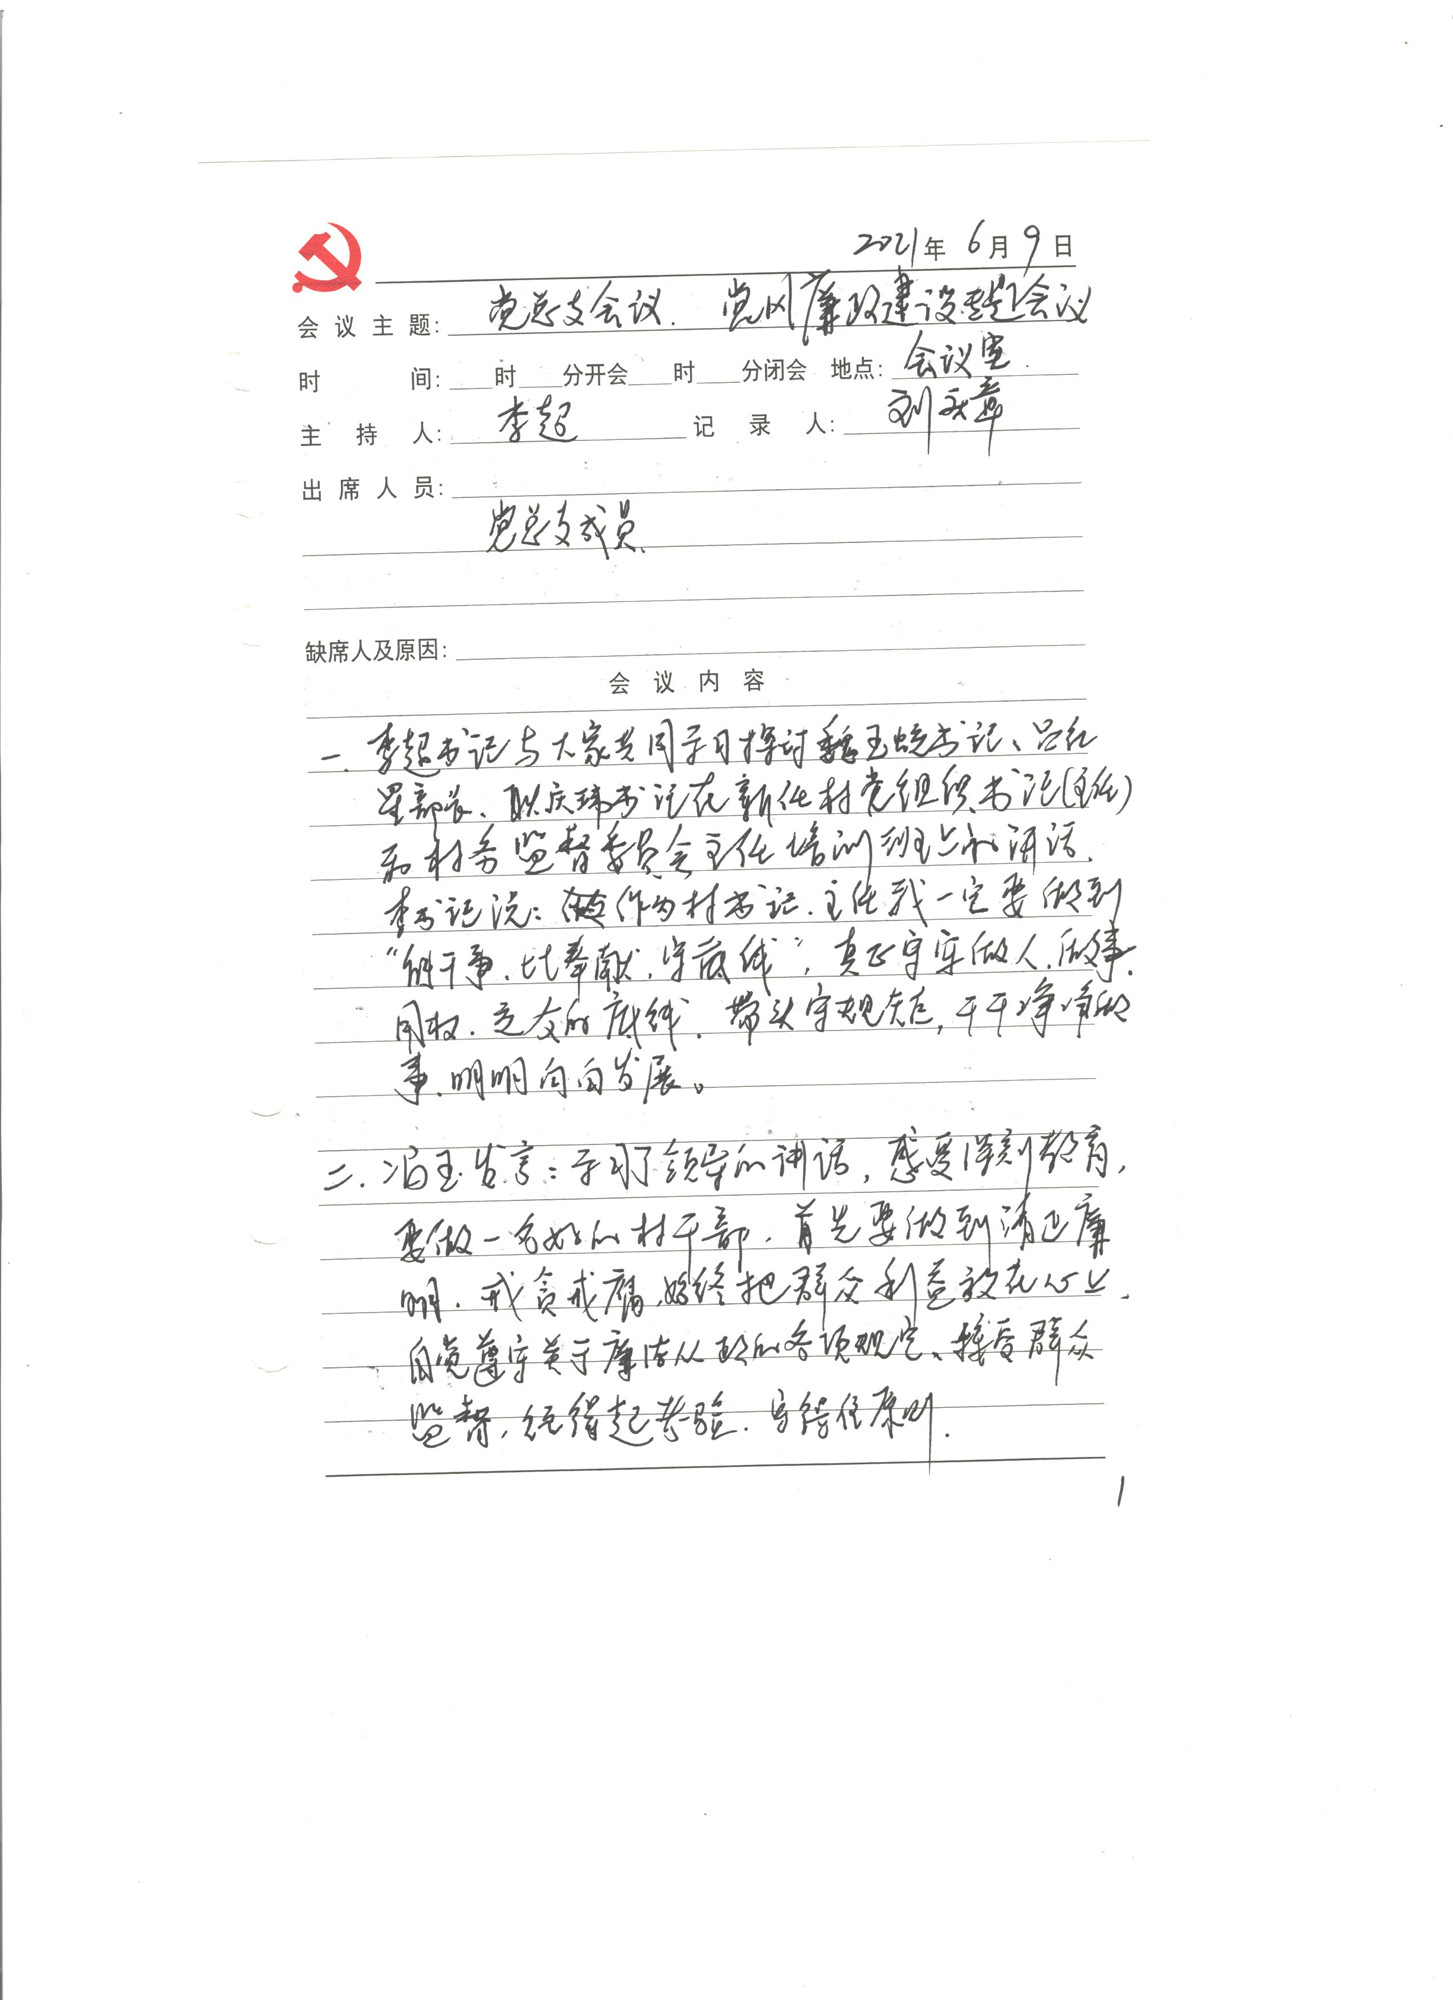 2021年 6月 9日
会议主题: 党总支会议. 党风廉政建设专题会议
时 间: 时 分开会 时 分闭会 地点: 会议室.
主持人: 李起 记录人: 刘庆章
出席人员:
党总支成员.
缺席人及原因:
会议内容
一. 李起书记与大家共同学习探讨魏玉蛟书记、吕红
星部长、耿庆玮书记在新任村党组织书记(主任)
和村务监督委员会主任培训班上的讲话.
李书记说: 作为村书记.主任我一定要做到
"能干事.比奉献.守底线", 真正守牢做人.做事.
用权.交友的底线. 带头守规矩, 干干净净做
事.明明白白发展。
二. 冯玉发言: 学习了领导的讲话, 感受深刻教育,
要做一名好的村干部. 首先要做到清正廉
明. 戒贪戒腐,始终把群众利益放在心上.
自觉遵守关于廉洁从政的各项规定、接受群众
监督, 经得起考验. 守得住原则.
1